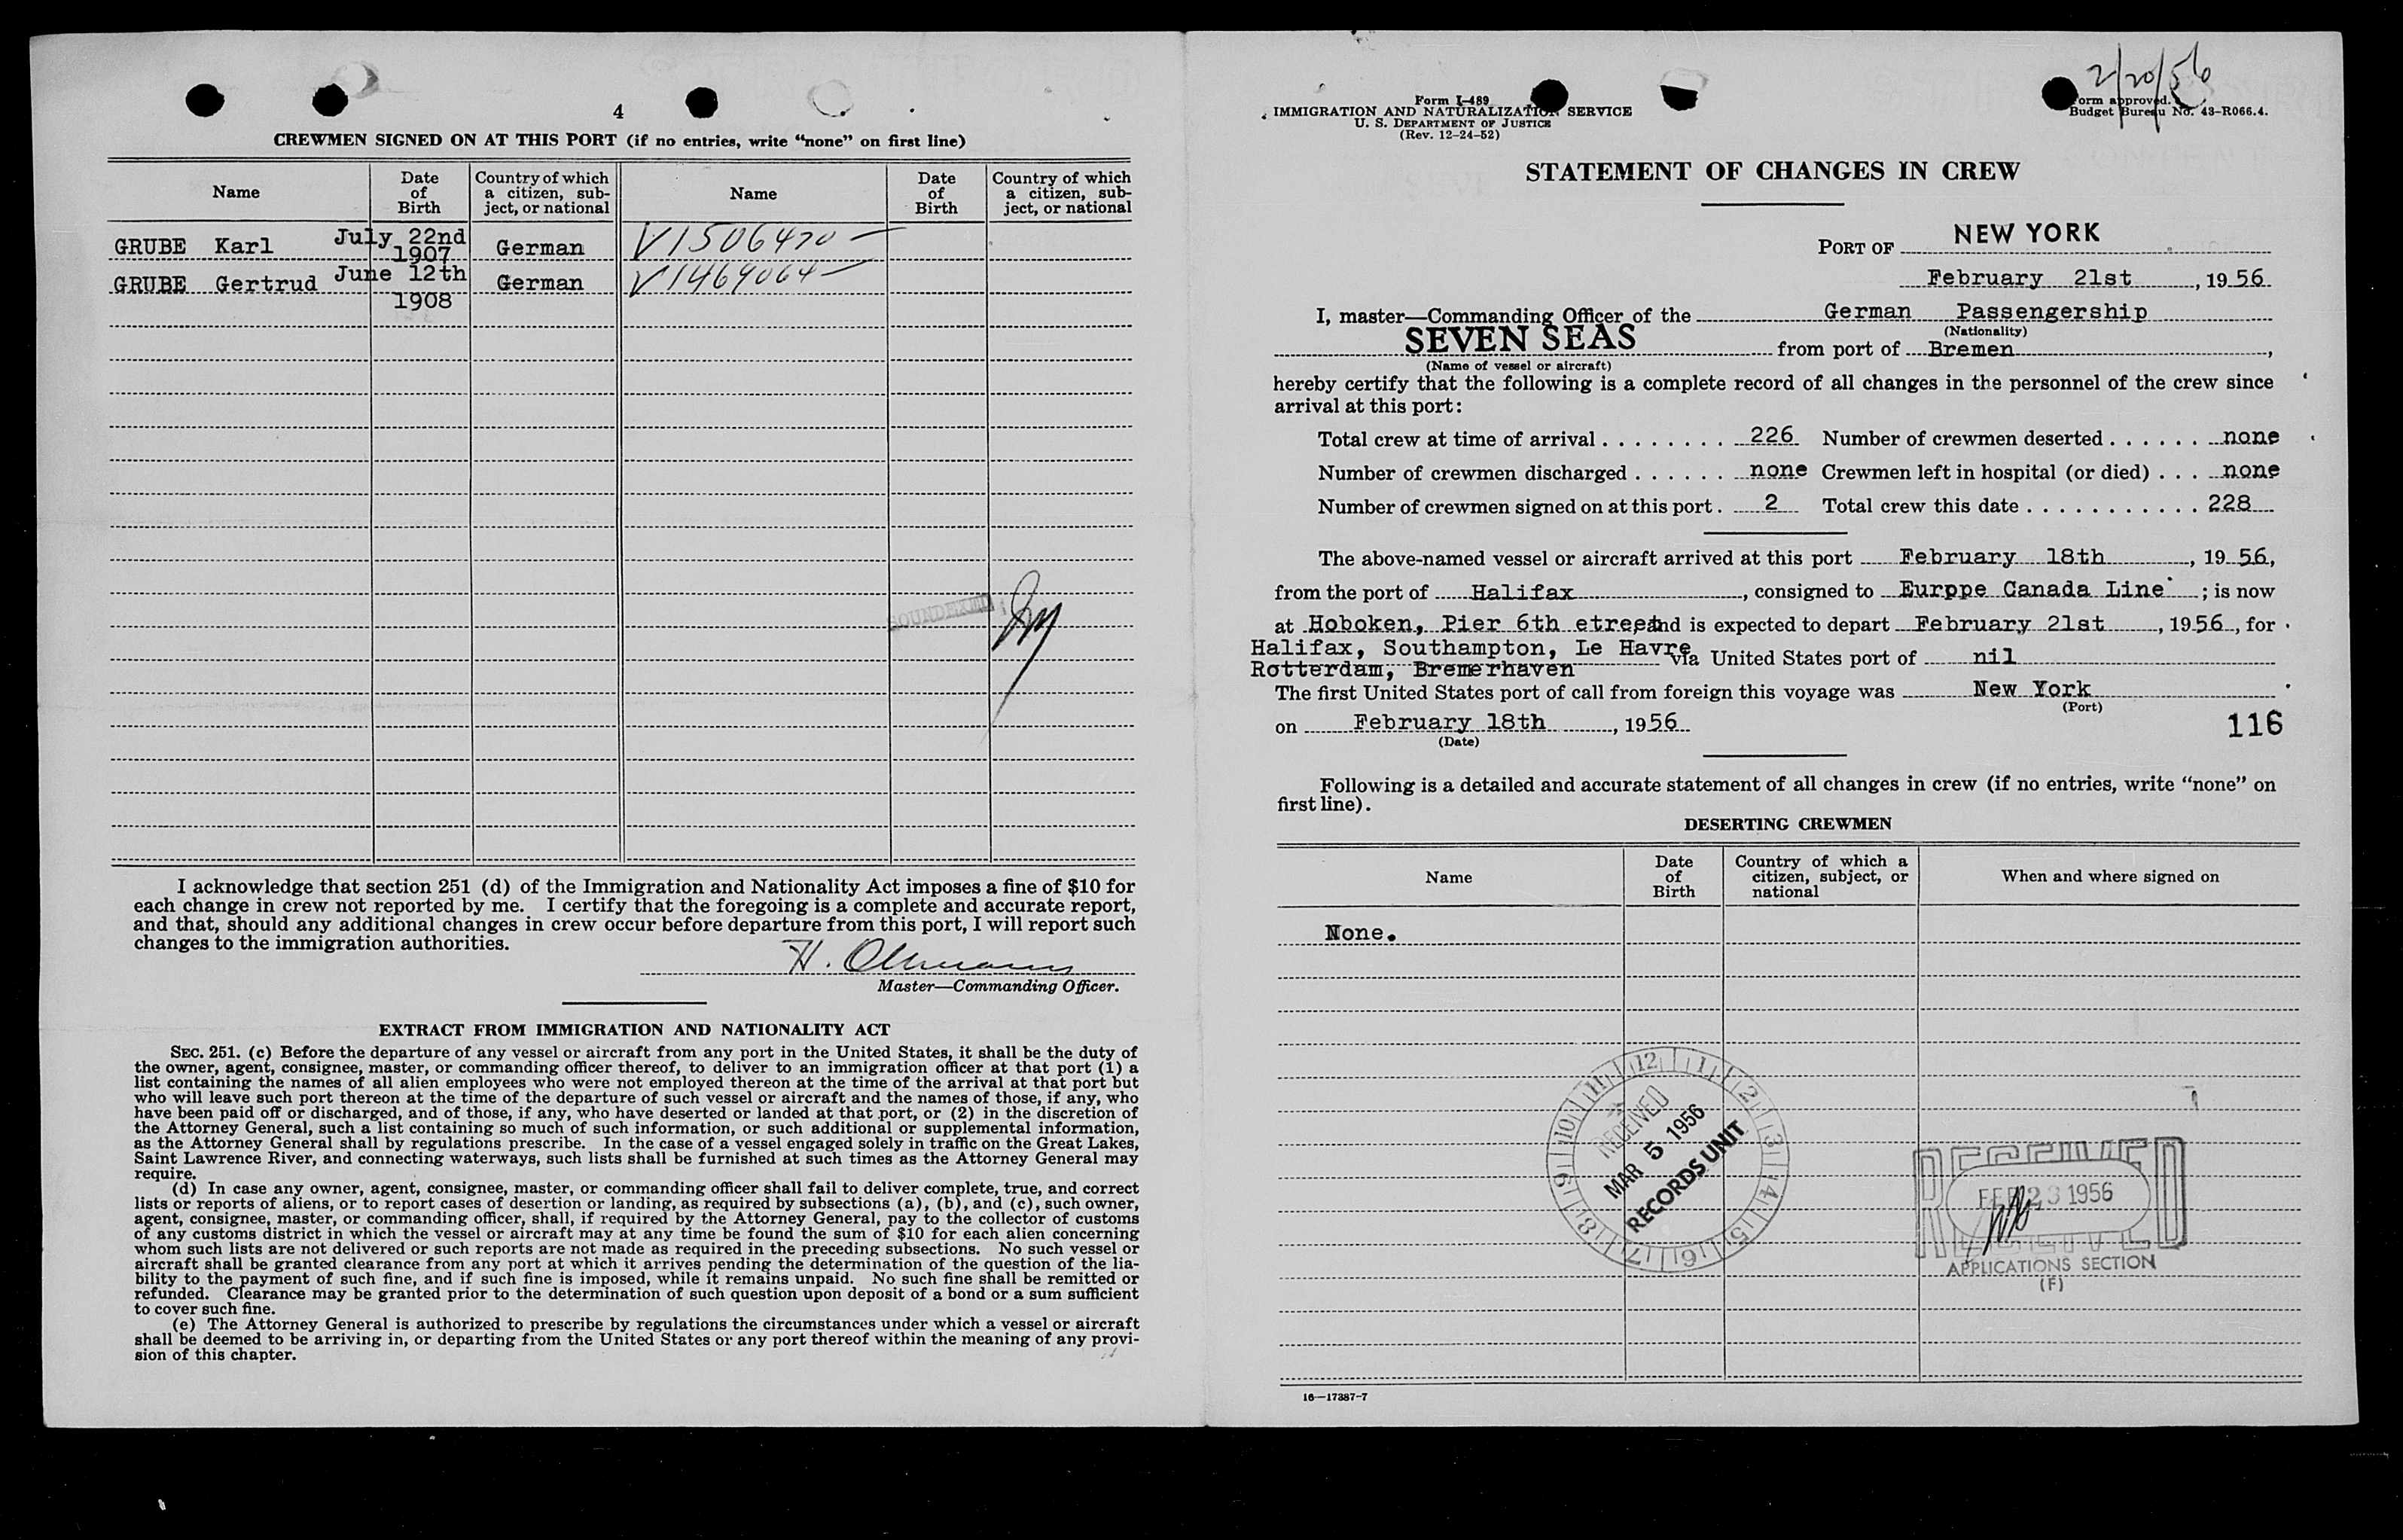 4
CREWMEN SIGNED ON AT THIS PORT (if no entries, write “none” on first line)
Name
Date of Birth
Country of which a citizen, sub-ject, or national
Name
Date of Birth
Country of which a citizen, sub-ject, or national
GRUBE Karl July 22nd 1907 German V1506470 —
GRUBE Gertrud June 12th 1908 German V1469064 —
SOUNDEXED
I acknowledge that section 251 (d) of the Immigration and Nationality Act imposes a fine of $10 for
each change in crew not reported by me. I certify that the foregoing is a complete and accurate report,
and that, should any additional changes in crew occur before departure from this port, I will report such
changes to the immigration authorities.
H.
Master—Commanding Officer.
EXTRACT FROM IMMIGRATION AND NATIONALITY ACT
SEC. 251. (c) Before the departure of any vessel or aircraft from any port in the United States, it shall be the duty of
the owner, agent, consignee, master, or commanding officer thereof, to deliver to an immigration officer at that port (1) a
list containing the names of all alien employees who were not employed thereon at the time of the arrival at that port but
who will leave such port thereon at the time of the departure of such vessel or aircraft and the names of those, if any, who
have been paid off or discharged, and of those, if any, who have deserted or landed at that port, or (2) in the discretion of
the Attorney General, such a list containing so much of such information, or such additional or supplemental information,
as the Attorney General shall by regulations prescribe. In the case of a vessel engaged solely in traffic on the Great Lakes,
Saint Lawrence River, and connecting waterways, such lists shall be furnished at such times as the Attorney General may
require.
(d) In case any owner, agent, consignee, master, or commanding officer shall fail to deliver complete, true, and correct
lists or reports of aliens, or to report cases of desertion or landing, as required by subsections (a), (b), and (c), such owner,
agent, consignee, master, or commanding officer, shall, if required by the Attorney General, pay to the collector of customs
of any customs district in which the vessel or aircraft may at any time be found the sum of $10 for each alien concerning
whom such lists are not delivered or such reports are not made as required in the preceding subsections. No such vessel or
aircraft shall be granted clearance from any port at which it arrives pending the determination of the question of the lia-
bility to the payment of such fine, and if such fine is imposed, while it remains unpaid. No such fine shall be remitted or
refunded. Clearance may be granted prior to the determination of such question upon deposit of a bond or a sum sufficient
to cover such fine.
(e) The Attorney General is authorized to prescribe by regulations the circumstances under which a vessel or aircraft
shall be deemed to be arriving in, or departing from the United States or any port thereof within the meaning of any provi-
sion of this chapter.
2/20/56
Form I-489
IMMIGRATION AND NATURALIZATION SERVICE
U. S. DEPARTMENT OF JUSTICE
(Rev. 12-24-52)
Form approved.
Budget Bureau No. 43-R066.4.
STATEMENT OF CHANGES IN CREW
PORT OF NEW YORK
February 21st, 1956
I, master—Commanding Officer of the German Passengership
(Nationality)
SEVEN SEAS from port of Bremen,
(Name of vessel or aircraft)
hereby certify that the following is a complete record of all changes in the personnel of the crew since
arrival at this port:
Total crew at time of arrival . . . . . . . . 226 Number of crewmen deserted . . . . . . none
Number of crewmen discharged . . . . . . none Crewmen left in hospital (or died) . . . none
Number of crewmen signed on at this port . 2 Total crew this date . . . . . . . . . . . 228
The above-named vessel or aircraft arrived at this port February 18th, 1956,
from the port of Halifax, consigned to Eurppe Canada Line ; is now
at Hoboken, Pier 6th etreet and is expected to depart February 21st, 1956, for
Halifax, Southampton, Le Havre
Rotterdam, Bremerhaven via United States port of nil
The first United States port of call from foreign this voyage was New York
(Port)
on February 18th, 1956
(Date)
116
Following is a detailed and accurate statement of all changes in crew (if no entries, write “none” on
first line).
DESERTING CREWMEN
Name
Date of Birth
Country of which a citizen, subject, or national
When and where signed on
None.
12 1 2 3 4 5 6 7 8 9 10 11
RECEIVED
MAR 5 1956
RECORDS UNIT
RECEIVED
FEB 23 1956
RECEIVED
APPLICATIONS SECTION
(F)
16—17387-7